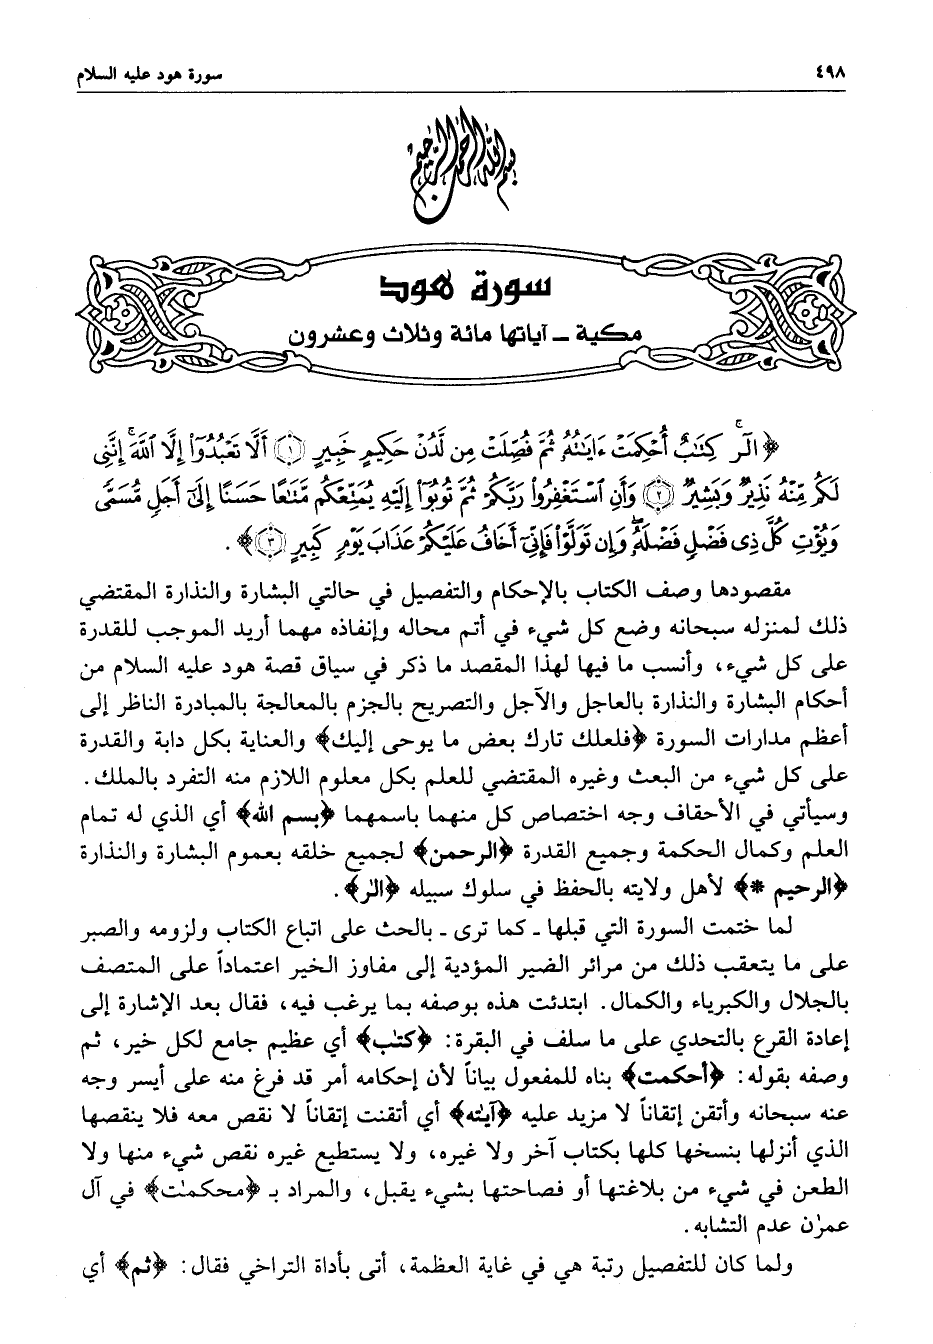 ٤٩٨ سورة هود عليه السلام
بسم الله الرحمن الرحيم
سورة هود
مكية ــ آياتها مائة وثلاث وعشرون
﴿الٓرۚ كِتَٰبٌ أُحۡكِمَتۡ ءَايَٰتُهُۥ ثُمَّ فُصِّلَتۡ مِن لَّدُنۡ حَكِيمٍ خَبِيرٍ ١ أَلَّا تَعۡبُدُوٓاْ إِلَّا ٱللَّهَۚ إِنَّنِي
لَكُم مِّنۡهُ نَذِيرٞ وَبَشِيرٞ ٢ وَأَنِ ٱسۡتَغۡفِرُواْ رَبَّكُمۡ ثُمَّ تُوبُوٓاْ إِلَيۡهِ يُمَتِّعۡكُم مَّتَٰعًا حَسَنًا إِلَىٰٓ أَجَلٖ مُّسَمّٗى
وَيُؤۡتِ كُلَّ ذِي فَضۡلٖ فَضۡلَهُۥۖ وَإِن تَوَلَّوۡاْ فَإِنِّيٓ أَخَافُ عَلَيۡكُمۡ عَذَابَ يَوۡمٖ كَبِيرٍ ٣﴾.
مقصودها وصف الكتاب بالإحكام والتفصيل في حالتي البشارة والنذارة المقتضي
ذلك لمنزله سبحانه وضع كل شيء في أتم محاله وإنفاذه مهما أريد الموجب للقدرة
على كل شيء، وأنسب ما فيها لهذا المقصد ما ذكر في سياق قصة هود عليه السلام من
أحكام البشارة والنذارة بالعاجل والآجل والتصريح بالجزم بالمعالجة بالمبادرة الناظر إلى
أعظم مدارات السورة ﴿فلعلك تارك بعض ما يوحى إليك﴾ والعناية بكل دابة والقدرة
على كل شيء من البعث وغيره المقتضي للعلم بكل معلوم اللازم منه التفرد بالملك.
وسيأتي في الأحقاف وجه اختصاص كل منهما باسمهما ﴿بسم الله﴾ أي الذي له تمام
العلم وكمال الحكمة وجميع القدرة ﴿الرحمن﴾ لجميع خلقه بعموم البشارة والنذارة
﴿الرحيم *﴾ لأهل ولايته بالحفظ في سلوك سبيله ﴿الر﴾.
لما ختمت السورة التي قبلها ـ كما ترى ـ بالحث على اتباع الكتاب ولزومه والصبر
على ما يتعقب ذلك من مرائر الضير المؤدية إلى مفاوز الخير اعتماداً على المتصف
بالجلال والكبرياء والكمال. ابتدئت هذه بوصفه بما يرغب فيه، فقال بعد الإشارة إلى
إعادة القرع بالتحدي على ما سلف في البقرة: ﴿كتٰب﴾ أي عظيم جامع لكل خير، ثم
وصفه بقوله: ﴿أحكمت﴾ بناه للمفعول بياناً لأن إحكامه أمر قد فرغ منه على أيسر وجه
عنه سبحانه وأتقن إتقاناً لا مزيد عليه ﴿آيٰته﴾ أي أتقنت إتقاناً لا نقص معه فلا ينقصها
الذي أنزلها بنسخها كلها بكتاب آخر ولا غيره، ولا يستطيع غيره نقص شيء منها ولا
الطعن في شيء من بلاغتها أو فصاحتها بشيء يقبل، والمراد بـ ﴿محكمٰت﴾ في آل
عمرٰن عدم التشابه.
ولما كان للتفصيل رتبة هي في غاية العظمة، أتى بأداة التراخي فقال: ﴿ثم﴾ أي